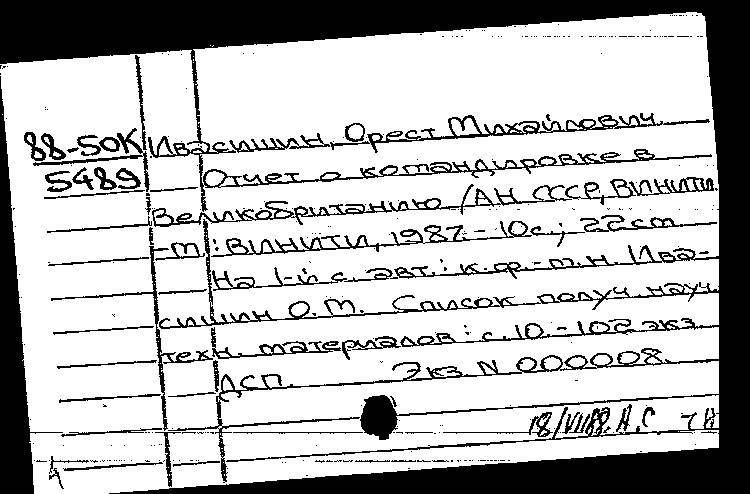 88-50К Ивасишин, Орест Михайлович.
5489 Отчет о командировке в
Великобританию / АН СССР, ВИНИТИ.
-М.: ВИНИТИ, 1987. - 10с.; 22см
На 1-й с. авт.: к.ф.-м.н. Ива-
сишин О.М. Список получ. науч.
техн. материалов: с.10. - 102 экз.
ДСП. Экз. N 000008.
18/VII88. А.С.